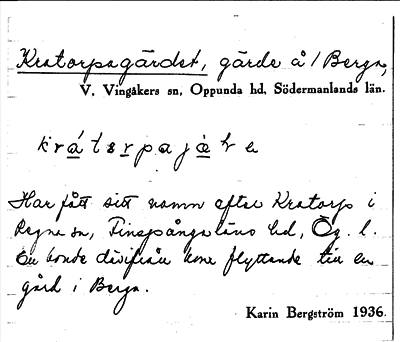 Kratorpagärdet, gärde å / Berga,
V. Vingåkers sn, Oppunda hd, Södermanlands län.
Har fått sitt namn efter Kratorp i
Regna sn, Finspånga läns hd, Ög. l.
En bonde därifrån kom flyttande till en
gård i Berga.
Karin Bergström 1936.